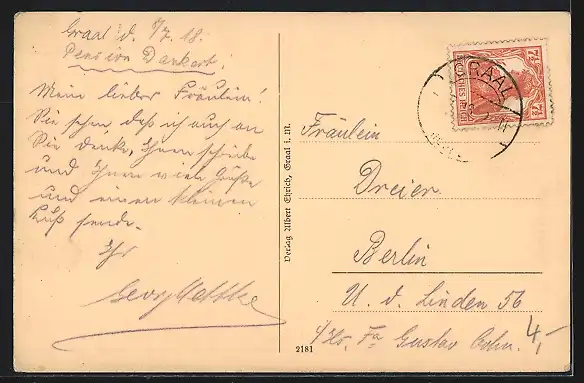 Graal d. 8/7. 18.
Pension Dankert.
Mein liebes Fräulein!
Sie sehen daß ich auch an
Sie denke, Ihnen schreibe
und Ihnen viele Grüße
und einen kleinen
Kuß sende.
Ihr
Georg
Verlag Albert Ehrich, Graal i. M.
2181
GRAAL
DEUTSCHES REICH
7½
7½
Fräulein
Dreier
Berlin
U. d. Linden 56
Fa Gustav Cohn.
4,-